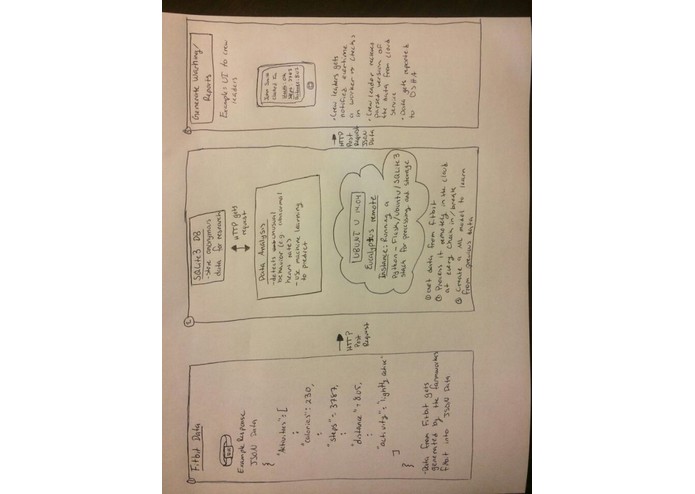 ① Fitbit Data
Example Response
JSON Data
{
"Activities": [
"calories": 230,
"steps" = 3783,
"distance": 8.05,
"activity": "lightly active"
]
}
-Data from Fitbit gets
generated by the farmworkers
Fitbit into JSON Data
HTTP
Post
Request
②
SQLite3 DB
- Store anonymous
data for research
HTTP gets
request
Data Analysis
- detects unusual
behavior (e.g. abnormal
heart rates)
- use machine learning
to predict
UBUNTU V 14.04
Eucalyptus remote
Instance: Running a
Python - Flask/Ubuntu/SQLite3
stack for processing and storage
① Get data from fitbit
② Process it remotely in the cloud
at every check in/break
③ Create a ML model to learn
from previous data
HTTP
Post
Request
JSON
Data
③
Generate Warning/
Reports
Example: UI to crew
leaders
- Crew leaders gets
notified everytime
a worker checks
in
- Crew leader receives
parsed version of
the data from cloud
service
- Data gets reported
to OSHA